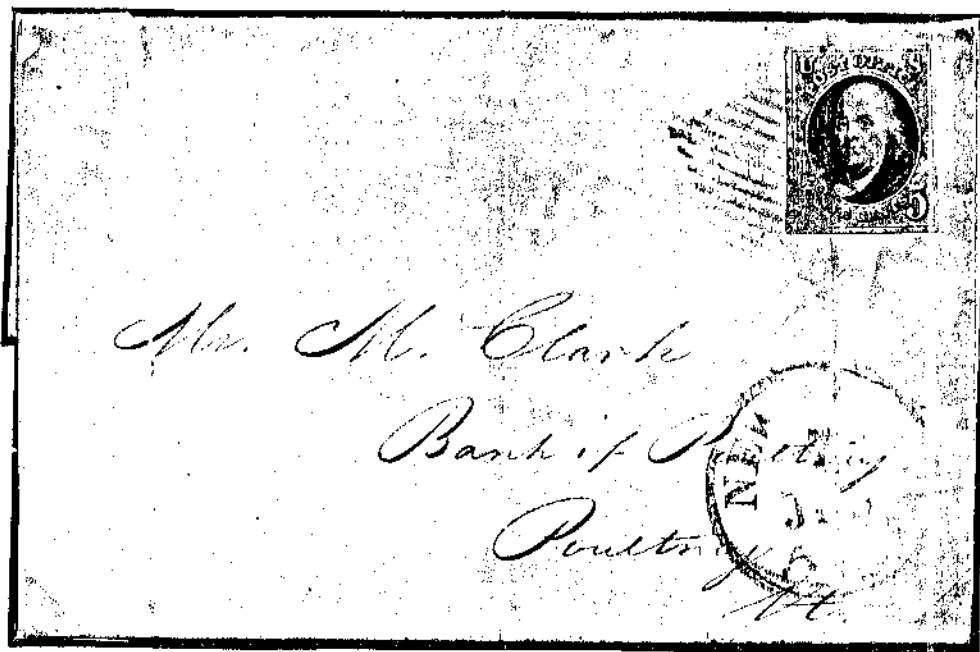 U S
POST OFFICE
5
Mr. M. Clark
Bank of Poultney
Poultney
Vt.
NEW